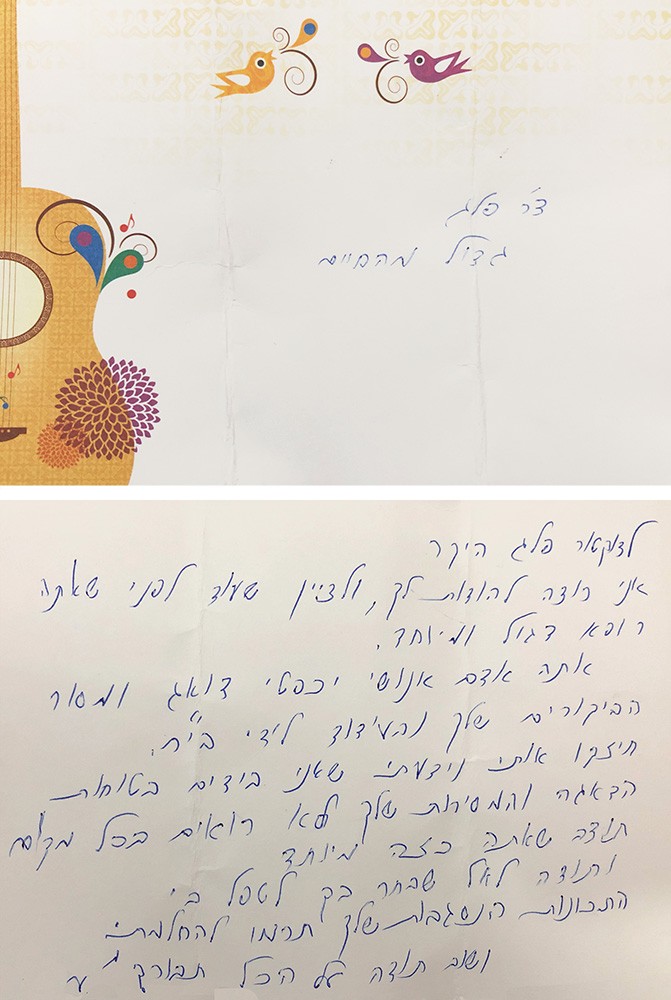 ד״ר פלג
גדול מהחיים
לדוקטור פלג היקר
אני רוצה להודות לך, ולציין שעוד לפני שאתה
רופא דגול ומיוחד.
אתה אדם אנושי יכפטי דואג ומסור
הביקורים שלך והעידוד לידי בי״ח.
חיזקו אותי וידעתי שאני בידים בטוחות
הדאגה והמסירות שלך לא רואים בכל מקום
תודה שאתה כזה מיוחד
ותודה לאל שבחר בך לטפל בי
התכונות הנשגבות שלך תרמו להחלמתי
ושוב תודה על הכל תבורך